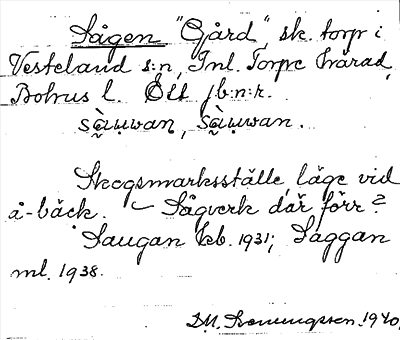 Sågen "Gård", sk. torp i
Vesteland s:n, Inl. Torpe härad,
Bohus l. Ett jb:n:r.
sàu̥wan, sàu̥wan.
Skogsmarksställe, läge vid
å-bäck. – Sågverk där förr?
Saugan kb. 1931; Saggan
ml. 1938.
1940.